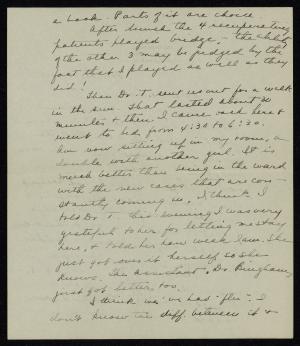 a book. Parts of it are choice
After lunch the 4 recuperating
patients played bridge. The
of the other 3 may be judged by the
fact that I played as well as they
did!
Then Dr. T. sent us out for a walk
in the sun. That lasted about 20
minutes & then I came back here &
went to bed from 4:30 to 6:30.
Am now sitting up in my room, a
double with another girl. It is
much better than being in the ward
with the new cases that are con-
stantly coming in. I think I
told Dr. T. this evening I was very
grateful to her for letting me stay
here, & told her how weak I am. She
just got over it herself so she
knows. The assistant, Dr. Bingham,
just got better, too.
I think we've had "flu". I
don't know the diff. between it &